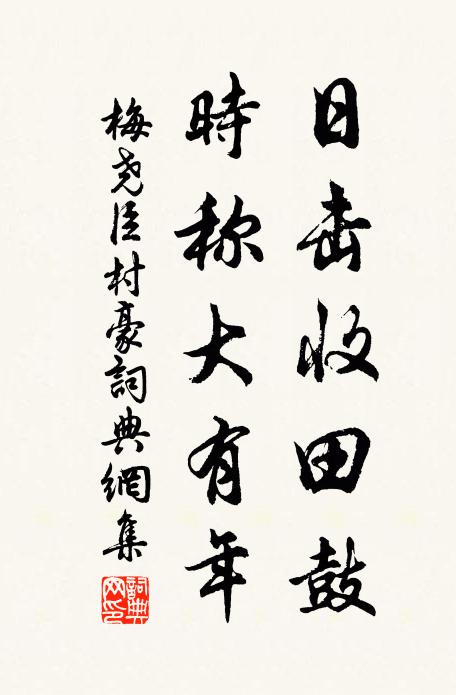 日击收田鼓
時称大有年
梅尧臣村豪詞典網集
詞典網印